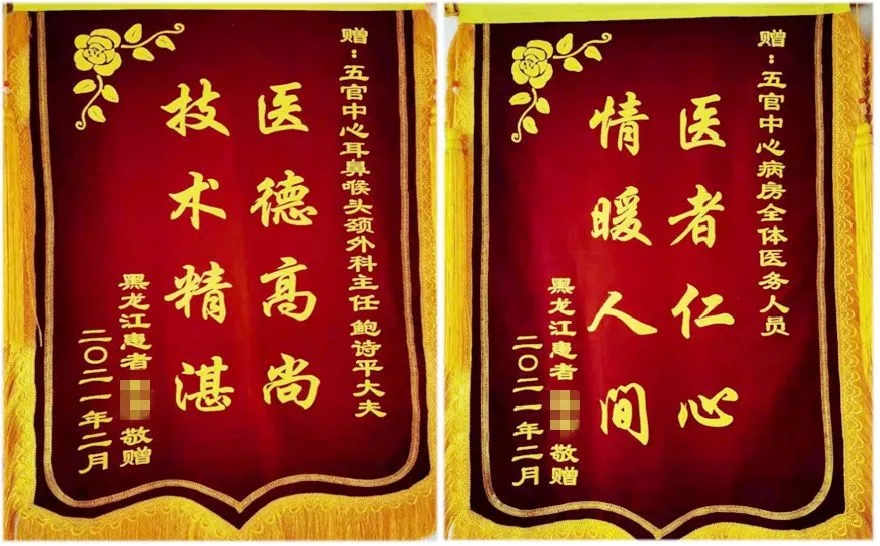 赠：五官中心耳鼻喉头颈外科主任 鲍诗平大夫
医德高尚
技术精湛
黑龙江患者 敬赠
二〇二一年二月
赠：五官中心病房全体医务人员
医者仁心
情暖人间
黑龙江患者 敬赠
二〇二一年二月